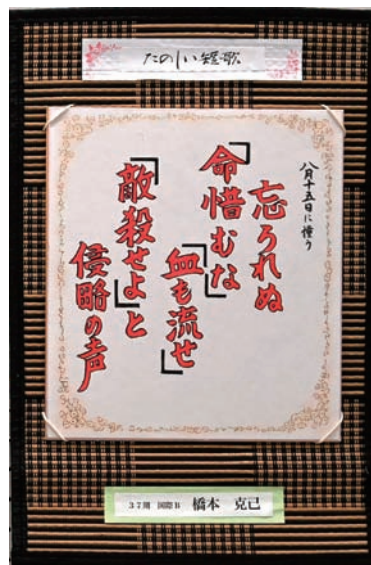 たのしい短歌
八月十五日に憶う
忘られぬ
「命惜むな」
「血も流せ」
「敵殺せよ」と
侵略の声
37期 国際B 橋本 克己